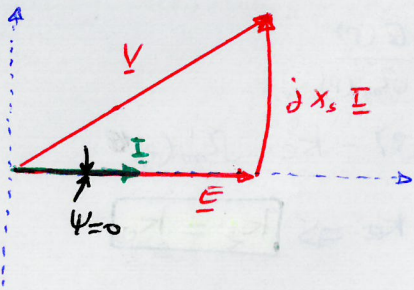 V
j Xs I
I
E
Ψ=0